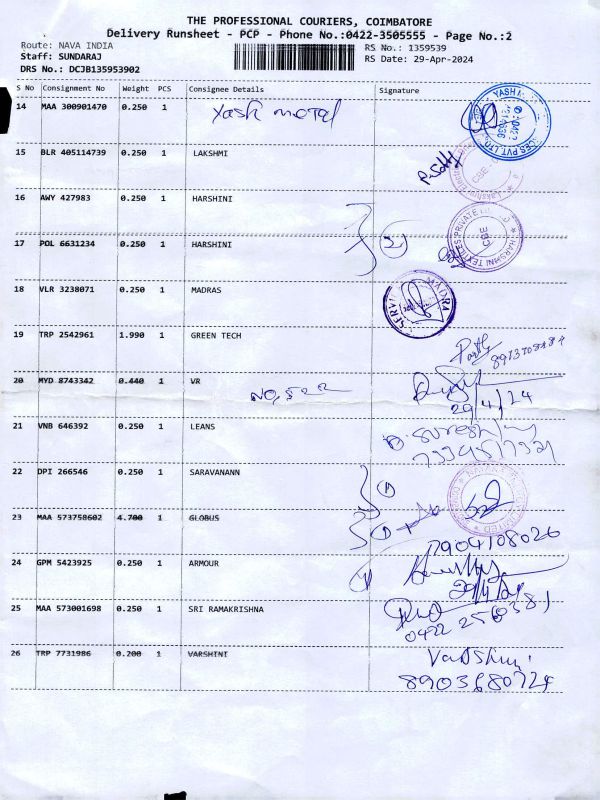 THE PROFESSIONAL COURIERS, COIMBATORE
Delivery Runsheet - PCP - Phone No.:0422-3505555 - Page No.:2
Route: NAVA INDIA RS No.: 1359539
Staff: SUNDARAJ RS Date: 29-Apr-2024
DRS No.: DCJB135953902
S No Consignment No Weight PCS Consignee Details Signature
14 MAA 300901470 0.250 1 Yash metal
15 BLR 405114739 0.250 1 LAKSHMI
16 AWY 427983 0.250 1 HARSHINI
17 POL 6631234 0.250 1 HARSHINI 2
HARSHNI TEXTILES PRIVATE LIMITED
18 VLR 3238071 0.250 1 MADRAS
19 TRP 2542961 1.990 1 GREEN TECH
20 MYD 8743342 0.440 1 VR
29/4/24
21 VNB 646392 0.250 1 LEANS
22 DPI 266546 0.250 1 SARAVANANN
23 MAA 573758602 4.700 1 GLOBUS
7904108026
24 GPM 5423925 0.250 1 ARMOUR
29/4/24
25 MAA 573001698 0.250 1 SRI RAMAKRISHNA
26 TRP 7731986 0.200 1 VARSHINI Varshini
8903680724